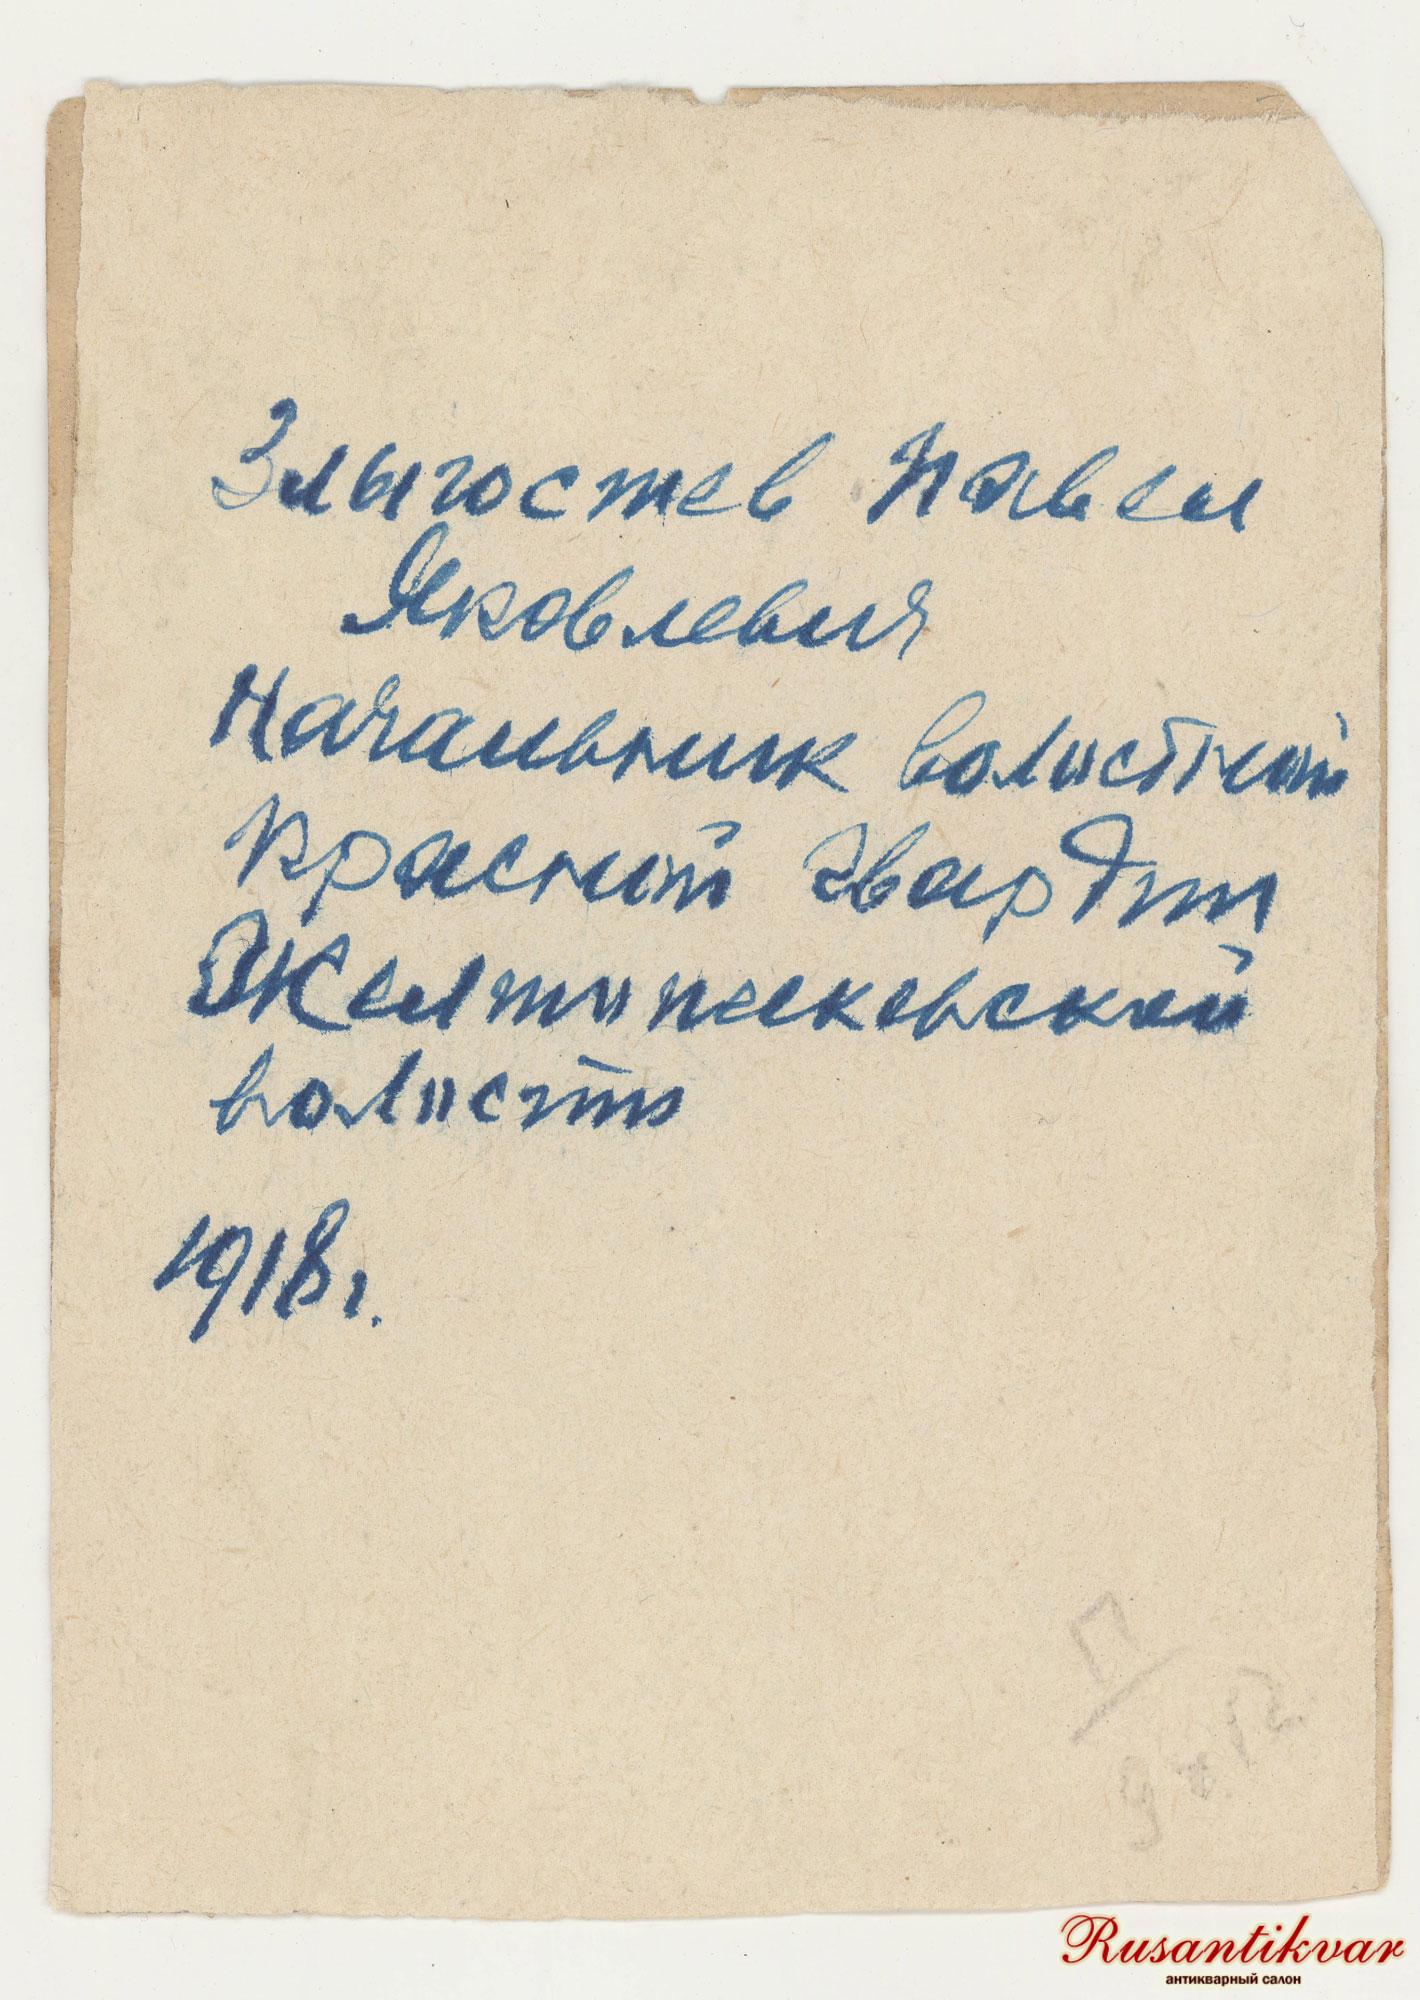 Злыгостев Павел
Яковлевич
Начальник волостной
красной гвардии
волости
1918г.
Rusantikvar
антикварный салон